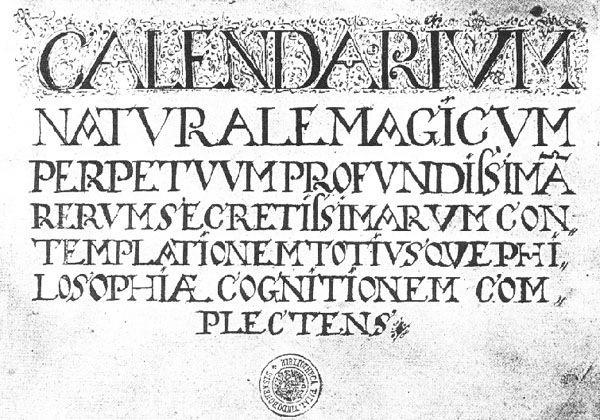 CALENDARIVM
NATVRALE MAGICVM
PERPETVVM PROFVNDISSIMÃ
RERVM SECRETISSIMARVM CON,
TEMPLATIONEM TOTIVSQVE PHI,,
LOSOPHIÆ COGNITIONEM COM,
PLECTENS
BIBLIOTHECA